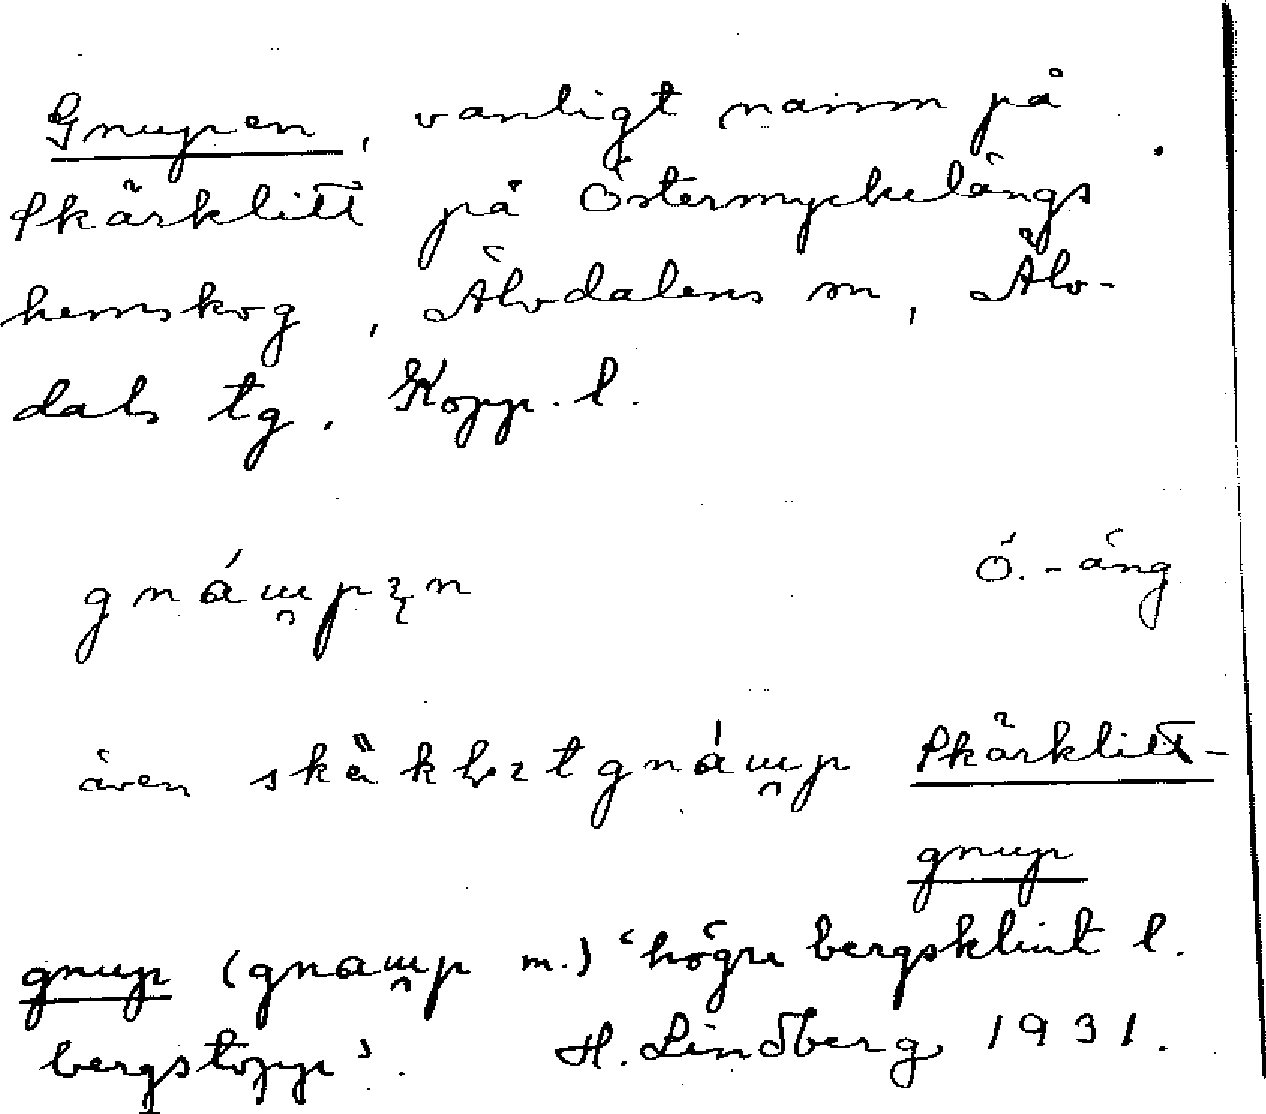 Gnupen, vanligt namn på
Skärklitt på Östermyckelängs
hemskog, Älvdalens sn, Älv-
dals tg. Kopp. l.
Ö.-äng
även
Skärklitt-
gnup
gnup (gnau̯p m.) 'högre bergsklint l.
bergstopp'. H. Lindberg 1931.